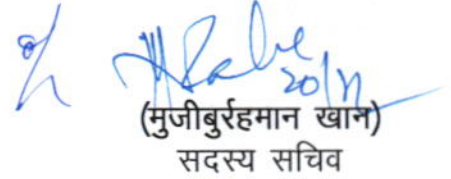 20/11
(मुजीबुर्रहमान खान)
सदस्य सचिव